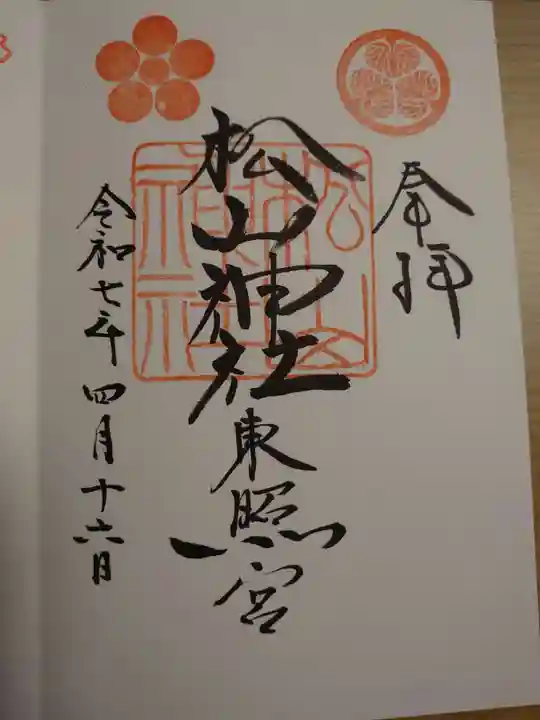 奉拝
松山神社東照宮
令和七年四月十六日
松山神社